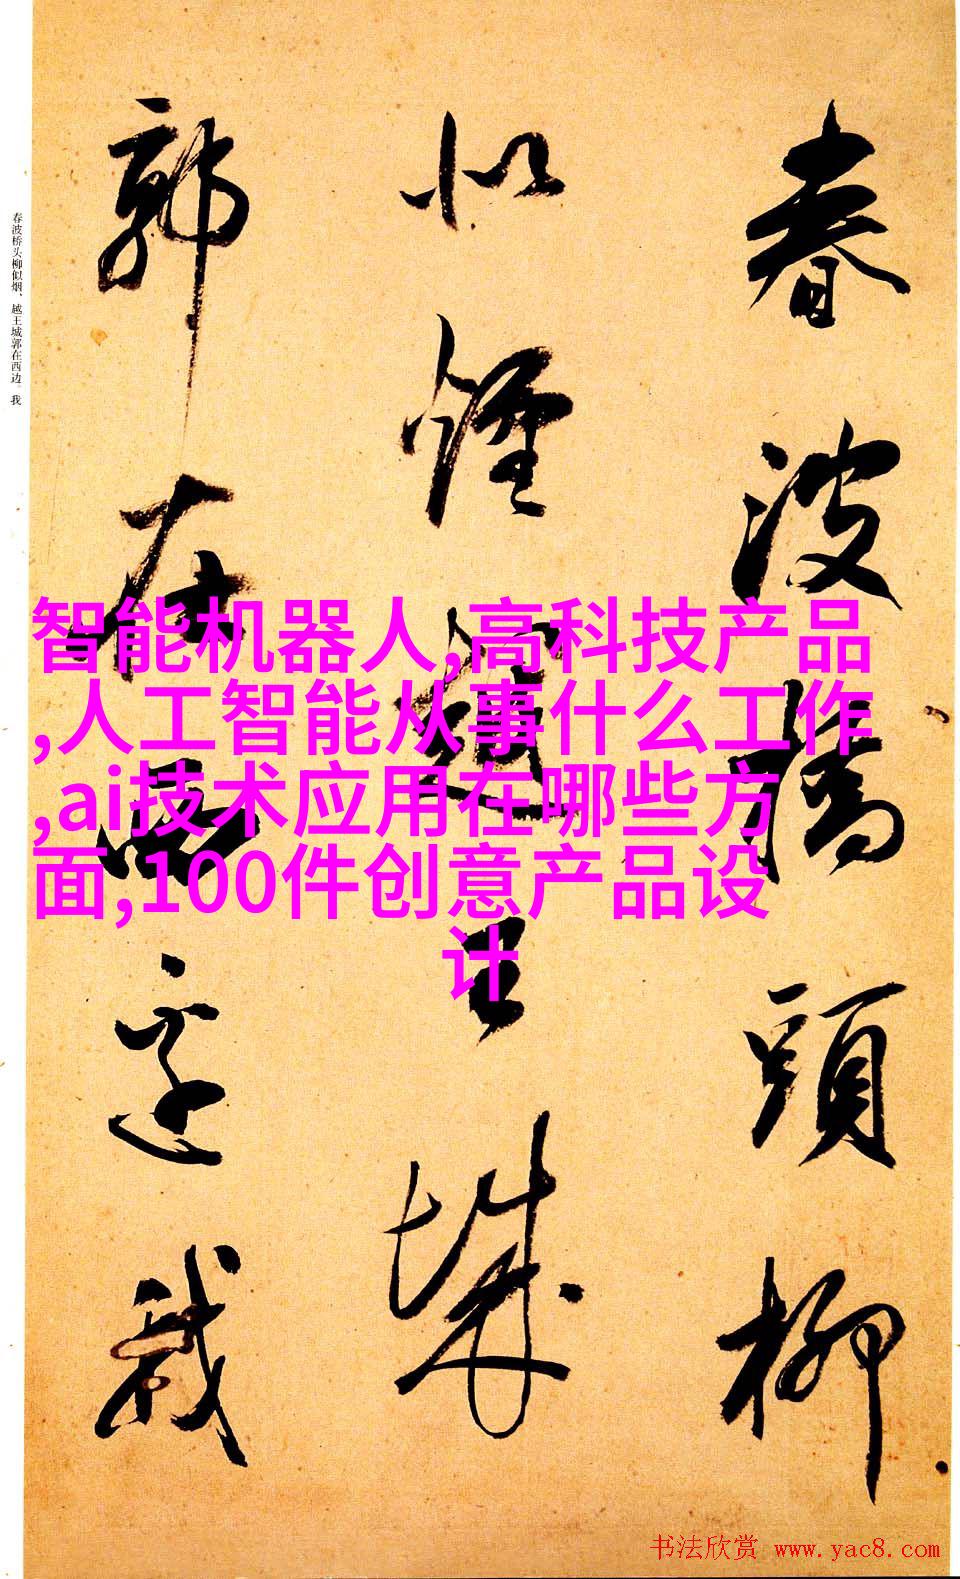 春波橋頭柳
似煙越王城
郭在西邊我
春波桥头柳似烟、越王城郭在西边。我
智能机器人,高科技产品
,人工智能从事什么工作
,ai技术应用在哪些方
面,100件创意产品设
计
书法欣赏 www.yac8.com